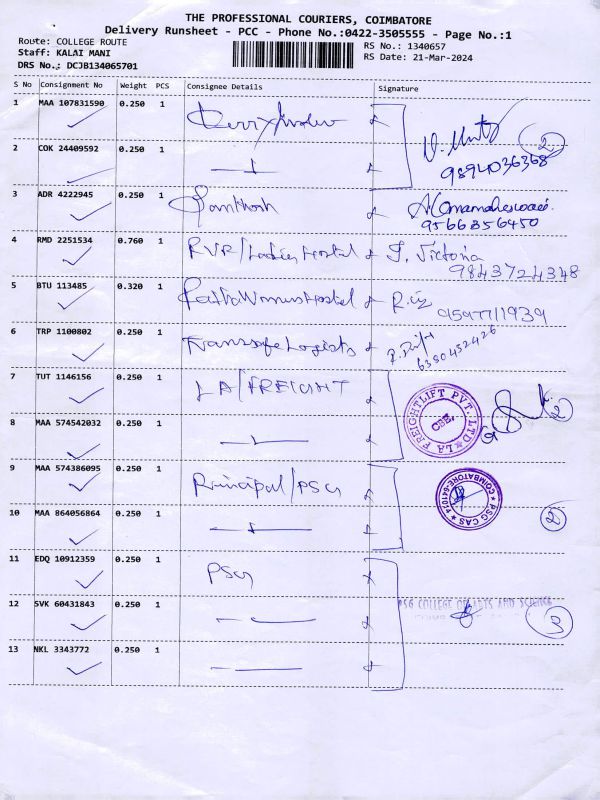 THE PROFESSIONAL COURIERS, COIMBATORE
Delivery Runsheet - PCC - Phone No.:0422-3505555 - Page No.:1
Route: COLLEGE ROUTE
RS No.: 1340657
Staff: KALAI MANI
RS Date: 21-Mar-2024
DRS No.: DCJB134065701
S No Consignment No Weight PCS Consignee Details Signature
1 MAA 107831590 0.250 1
2
9894036368
2 COK 24409592 0.250 1
3 ADR 4222945 0.250 1 Santhosh
9566856450
4 RMD 2251534 0.760 1 RVR/Ladies Hostel J. Victoria
9843724348
5 BTU 113485 0.320 1
9597711939
6 TRP 1100802 0.250 1 Transsafe Logistics
6380452426
7 TUT 1146156 0.250 1 LA/FREIGHT
LA FREIGHTLIFT PVT. LTD
CBE.
2
8 MAA 574542032 0.250 1
9 MAA 574386095 0.250 1 Principal/PSG
PSG CAS COIMBATORE-641014
10 MAA 864056864 0.250 1
2
11 EDQ 10912359 0.250 1 PSG
12 SVK 60431843 0.250 1
PSG COLLEGE OF ARTS AND SCIENCE
3
13 NKL 3343772 0.250 1